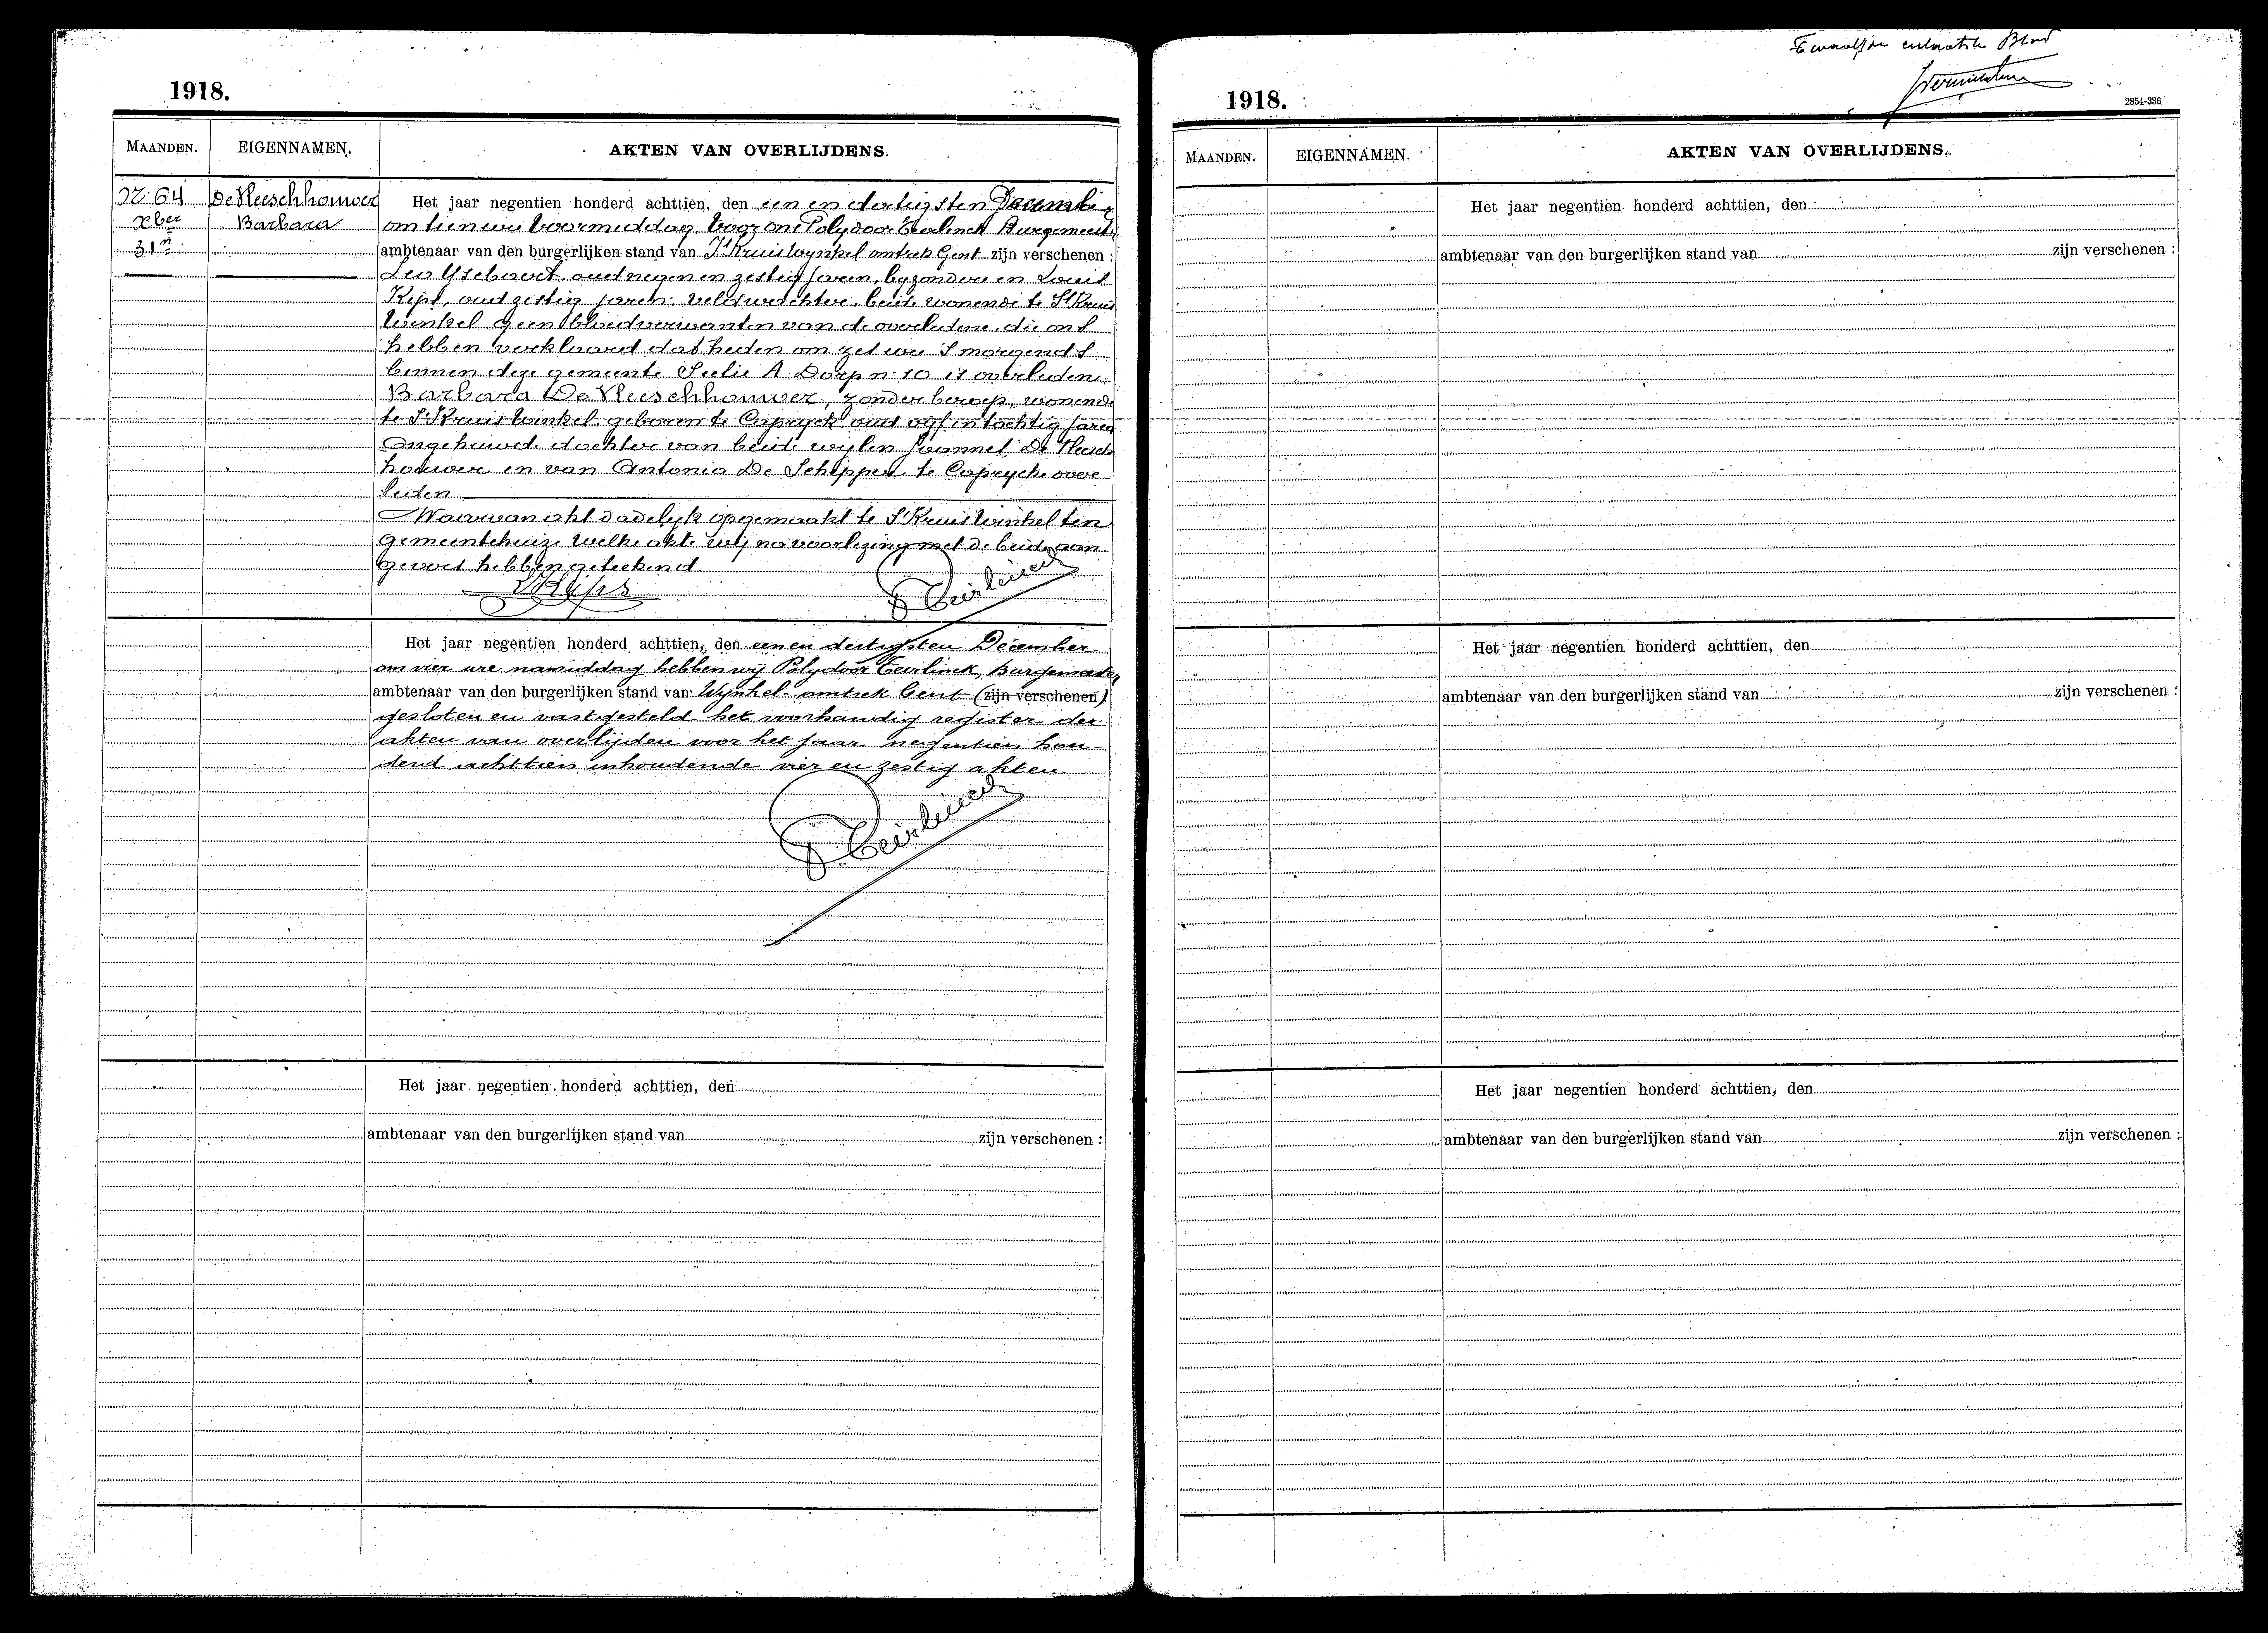 1918.
MAANDEN. EIGENNAMEN. AKTEN VAN OVERLIJDENS.
N: 64 De Vleeschhouwer Het jaar negentien honderd achttien, den een en dertigsten December
Xber Barbara om tien ure voormiddag, voor ons Polydoor Teirlinck Burgemeester
31n ambtenaar van den burgerlijken stand van St Kruis Wynkel omtrek Gent zijn verschenen :
Leo Ysebaert, oud negen en zestig jaren, byzondere en Louis
Kips, oud zestig jaren veldwachter, beide wonende te St Kruis
Winkel geen bloedverwanten van de overledene, die ons
hebben verklaard dat heden om zes ure s morgends
binnen deze gemeente Sectie A Dorp n: 10 is overleden:
Barbara De Vleeschhouwer, zonder beroep, wonende
te St Kruis Winkel, geboren te Capryck oud vijf en tachtig jaren
Ongehuwd, dochter van beide wijlen Joannes De Vleesch
houwer en van Antonia De Schepper te Caprycke over
leden
Waarvan akt dadelyk opgemaakt te St Kruis Winkel ten
gemeentehuize welke akte wij na voorlezing met de beide aan
gevers hebben geteekend
L Kips P. Teirlinck
Het jaar negentien honderd achttien, den een en dertigsten December
om vier ure namiddag hebben wij Polydoor Teirlinck, Burgemeester
ambtenaar van den burgerlijken stand van Wynkel omtrek Gent (zijn verschenen)
gesloten en vastgesteld het voorhandig register der
akten van overlijden voor het jaar negentien hon-
derd achttien inhoudende vier en zestig akten
P. Teirlinck
Het jaar negentien honderd achttien, den
ambtenaar van den burgerlijken stand van zijn verschenen :
Blad
1918.
2854-336
MAANDEN. EIGENNAMEN. AKTEN VAN OVERLIJDENS.
Het jaar negentien honderd achttien, den
ambtenaar van den burgerlijken stand van zijn verschenen :
Het jaar negentien honderd achttien, den
ambtenaar van den burgerlijken stand van zijn verschenen :
Het jaar negentien honderd achttien, den
ambtenaar van den burgerlijken stand van zijn verschenen :